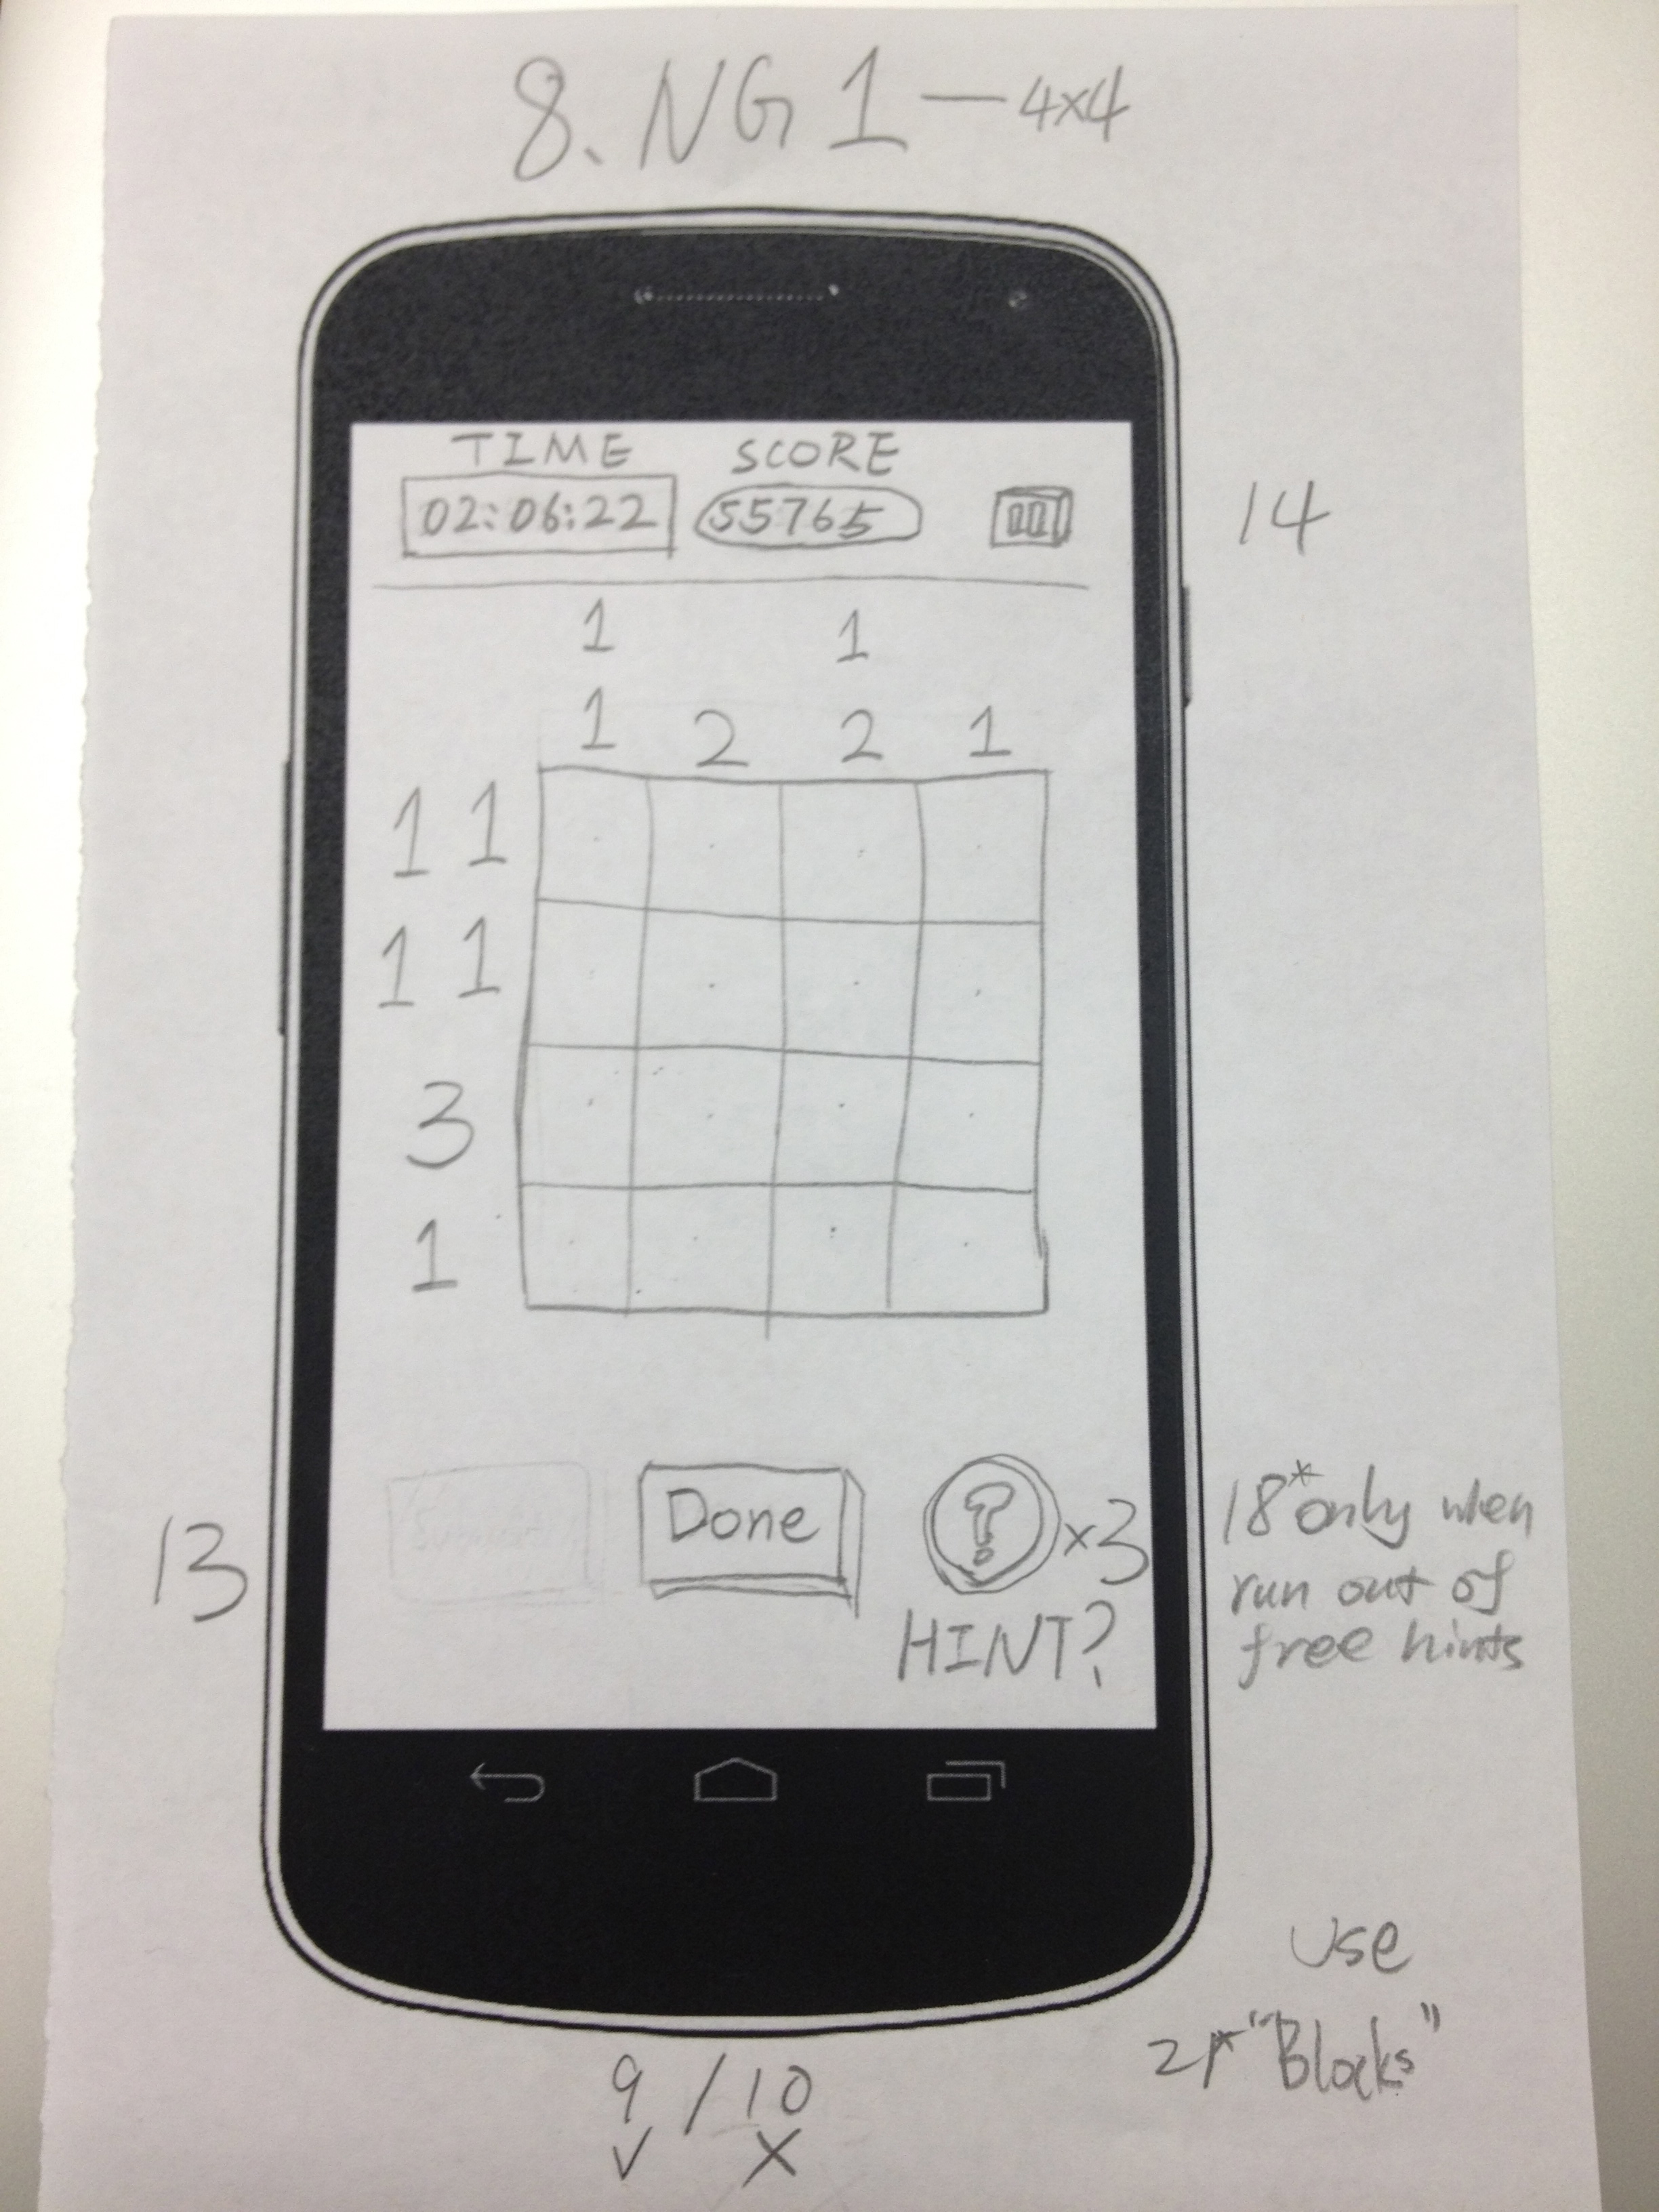 8. NG 1 — 4x4
TIME SCORE
02:06:22 55765 14
1 1
1 2 2 1
1 1
1 1
3
1
Done ? x3
HINT?
13
18* only when
run out of
free hints
Use
21* "Blocks"
9 / 10
✓ X